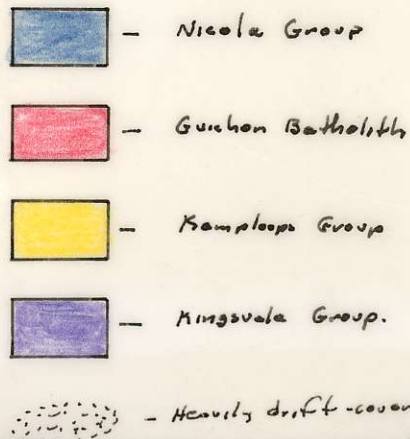 - Nicola Group
- Guichon Batholith
- Kamploops Group
- Kingsvale Group.
- Heavily drift-cover